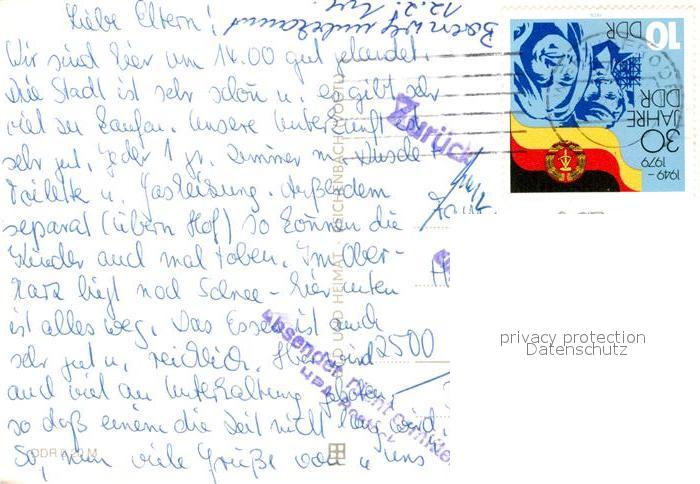 Liebe Eltern!
Wir sind hier um 14.00 gut gelandet.
Die Stadt ist sehr schön u. es gibt sehr
viel zu kaufen. Unsere Unterkunft ist
sehr gut. Jeder 1 gr. Zimmer m. Dusche
Toilette u. Gasheizung. Außerdem
separat (übern Hof) so können die
Kinder auch mal toben. Im Ober-
harz liegt noch Schnee – hier unten
ist alles weg. Das Essen ist auch
sehr gut u. reichlich. Hier wird
auch viel an Unterhaltung geboten,
so daß einem die Zeit nicht lang wird.
So, nun viele Grüße von uns
unbekannt
12.2.
Zurück
2500
Absender nicht ermittelt
BILD UND HEIMAT REICHENBACH (VOGTL)
DDR 0,20 M
10
DDR
30
JAHRE
DDR
1949 –
1979
privacy protection
Datenschutz